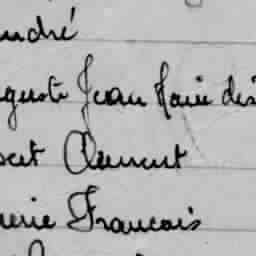 ndré
guste Jean Marie dés
bert Clément
rerie François